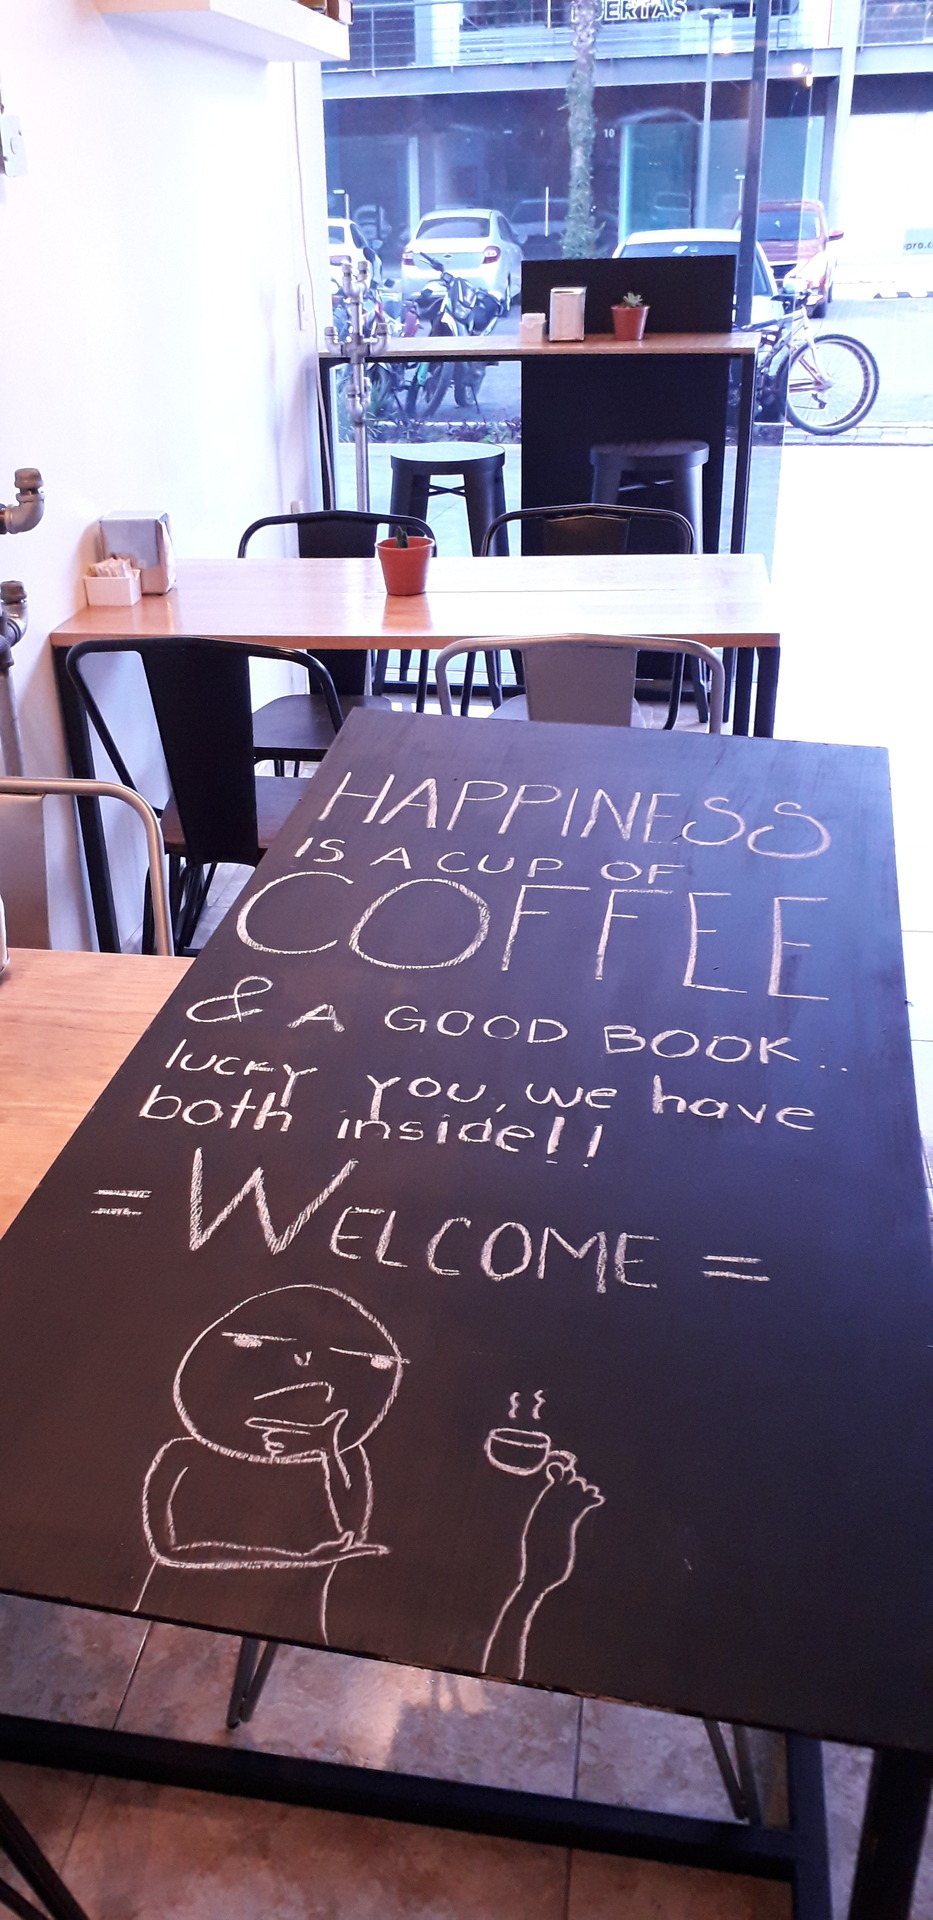 PUERTAS
10
pro.c
HAPPINESS
IS A CUP OF
COFFEE
& A GOOD BOOK...
lucky you, we have
both inside!!
= WELCOME =